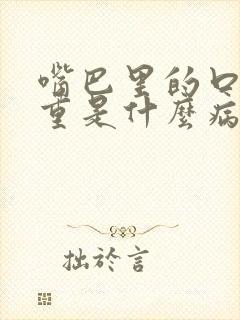 嘴巴里的口
重是什麼病
拙於言